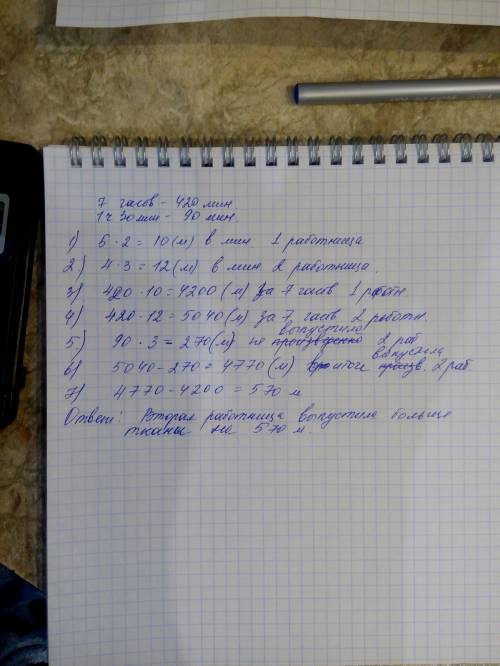 7 часов - 420 мин.
1ч 30 мин - 90 мин.
1) 5 · 2 = 10 (м) в мин. 1 работница
2) 4 · 3 = 12 (м) в мин. 2 работница.
3) 420 · 10 = 4200 (м) за 7 часов 1 работн.
4) 420 · 12 = 5040 (м) за 7 часов 2 работн.
выпустила
5) 90 · 3 = 270 (м) не произведено 2 раб
выпустила
6) 5040 - 270 = 4770 (м) в итоге произв. 2 раб.
7) 4770 - 4200 = 570 м
Ответ: Вторая работница выпустила больше
ткани на 570 м.